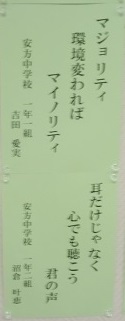 マジョリティ
環境変われば
マイノリティ
安方中学校 一年一組
吉田 愛実
耳だけじゃなく
心でも聴こう
君の声
安方中学校 一年二組
沼倉 叶恵